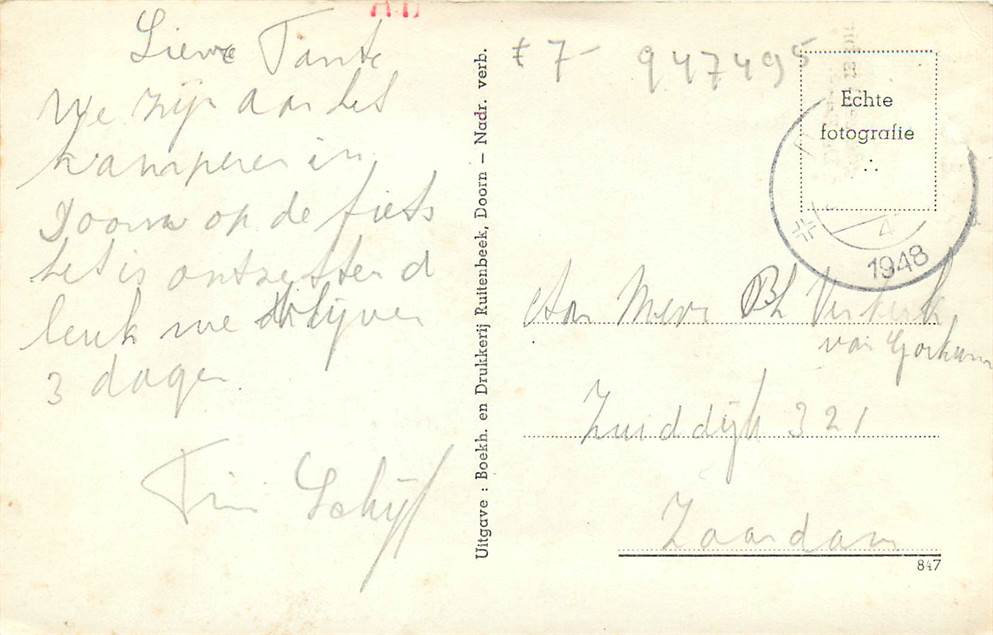 Lieve Tante
We zijn aan het
kamperen in
Doorn op de fiets
het is ontzettend
leuk we blijven
3 dagen.
Tini Schijf
Uitgave : Boekh. en Drukkerij Ruitenbeek, Doorn — Nadr. verb.
7- 947495
Echte
fotografie
4
1948
Aan Mevr Ph Verkerk
van Gorkum
Zuiddijk 321
Zaandam
847